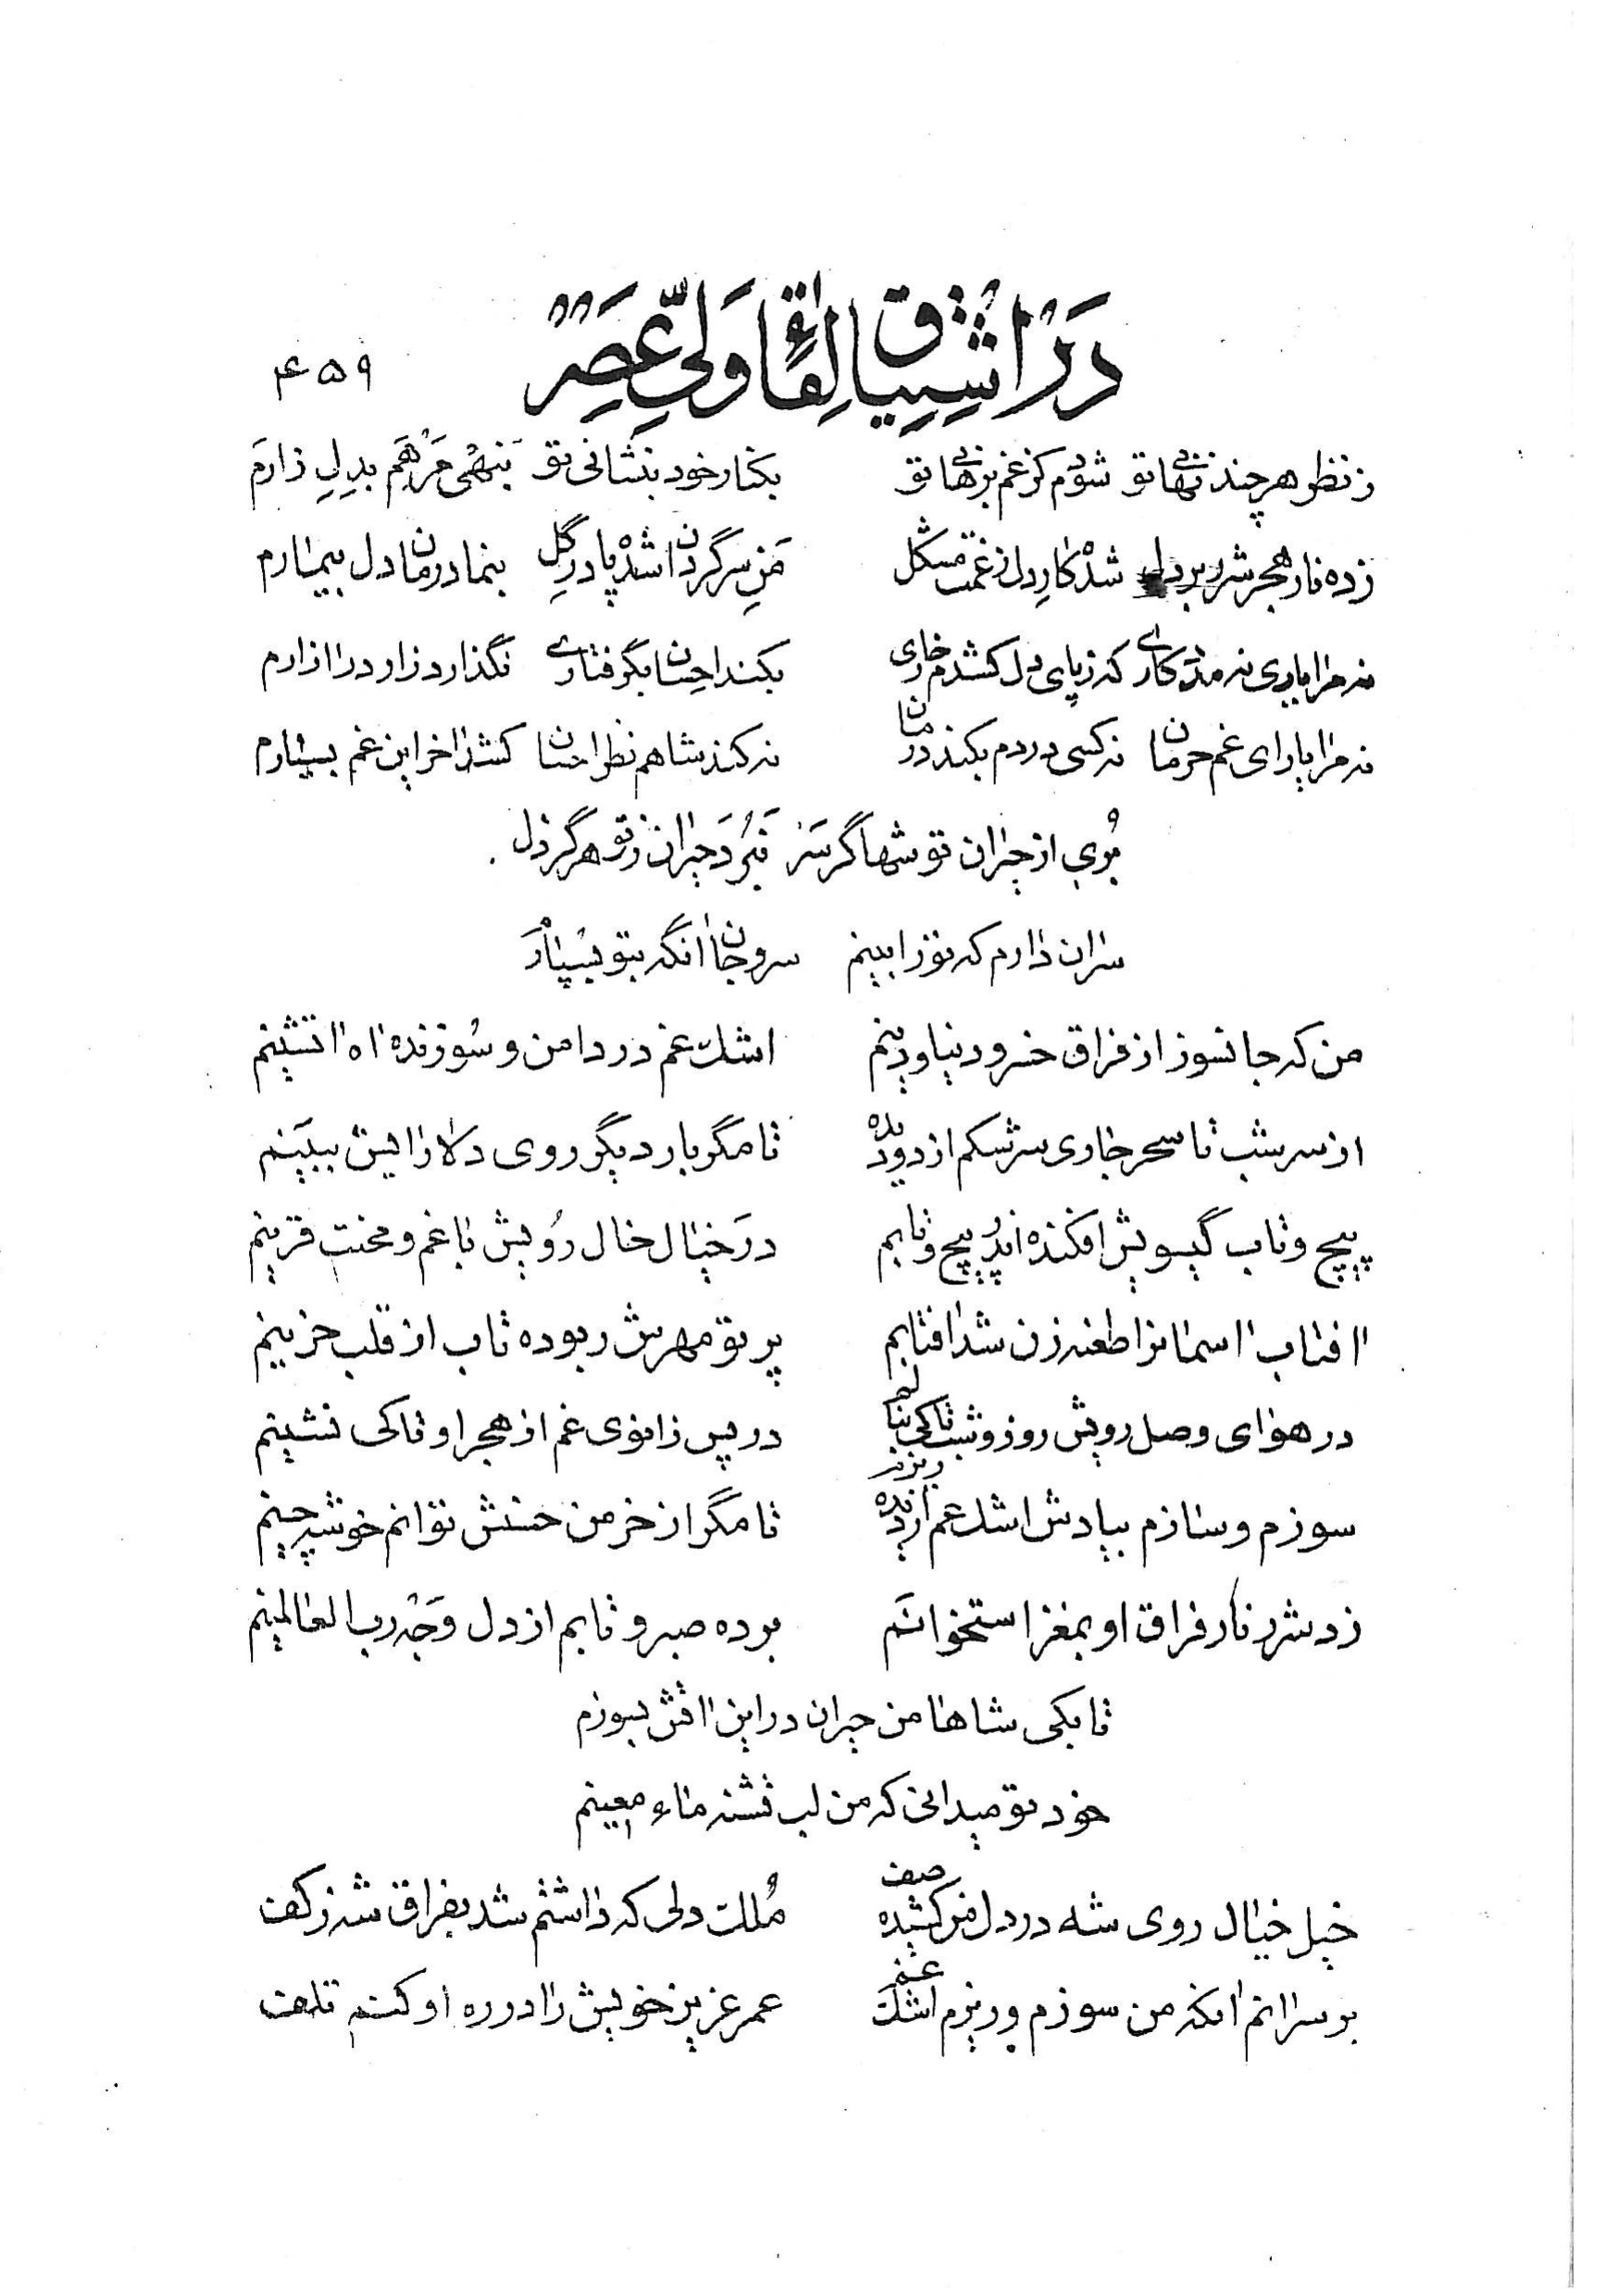 در اشتیاق لقاء ولیّ عصر
۴۵۹
ز نظر هر چند نهانی تو شودم کز غم برهانی تو بکنار خود بنشانی تو بنهی مرهم بدل زارم
زده نار هجر شرر بر دل شده کار دل ز غمت مشکل من سرگردان شده پا در گل بنما درمان دل بیمارم
نه مرا یاری نه مددکاری که ز پای دل کشدم خاری بکند احسان بگرفتاری نگذارد زار در ازارم
نه مرا یارای غم حرمان نه کسی دردم بکند درمان نه کند شاهم نظر احسان کشد اخر این غم بسیارم
بُری از حیران تو شها گر سر نبرد حیران ز تو هرگز دل
سر ان دارم که تو را بینم سر و جان انگه بتو بسپارم
من که جانسوز از فراق خسرو دنیا و دینم اشک غم در دامن و سوزنده اه اتشینم
از سر شب تا سحر جاری سرشکم از دو دیده تا مگر بار دیگر روی دلارایش ببینم
پیچ و تاب گیسویش افکنده اندر پیچ و تابم در خیال خال رویش با غم و محنت قرینم
افتاب اسمانرا طعنه زن شد افتابم پرتو مهرش ربوده تاب از قلب حزینم
در هوای وصل رویش روز و شب تا کی بنالم در پس زانوی غم از هجر او تا کی نشینم
سوزم و سازم بیادش اشک غم ریزم ز دیده تا مگر از خرمن حسنش توانم خوشه چینم
زد شرر نار فراق او بمغز استخوانم برده صبر و تابم از دل وجه رب العالمینم
تا بکی شاها من حیران در این اتش بسوزم
خود تو میدانی که من لب تشنه ماء معینم
خیل خیال روی شه در دل من کشیده صف ملک دلی که داشتم شد بفراق شه ز کف
بر سر انم انکه من سوزم و ریزم اشک غم عمر عزیز خویش را در ره او کنم تلف